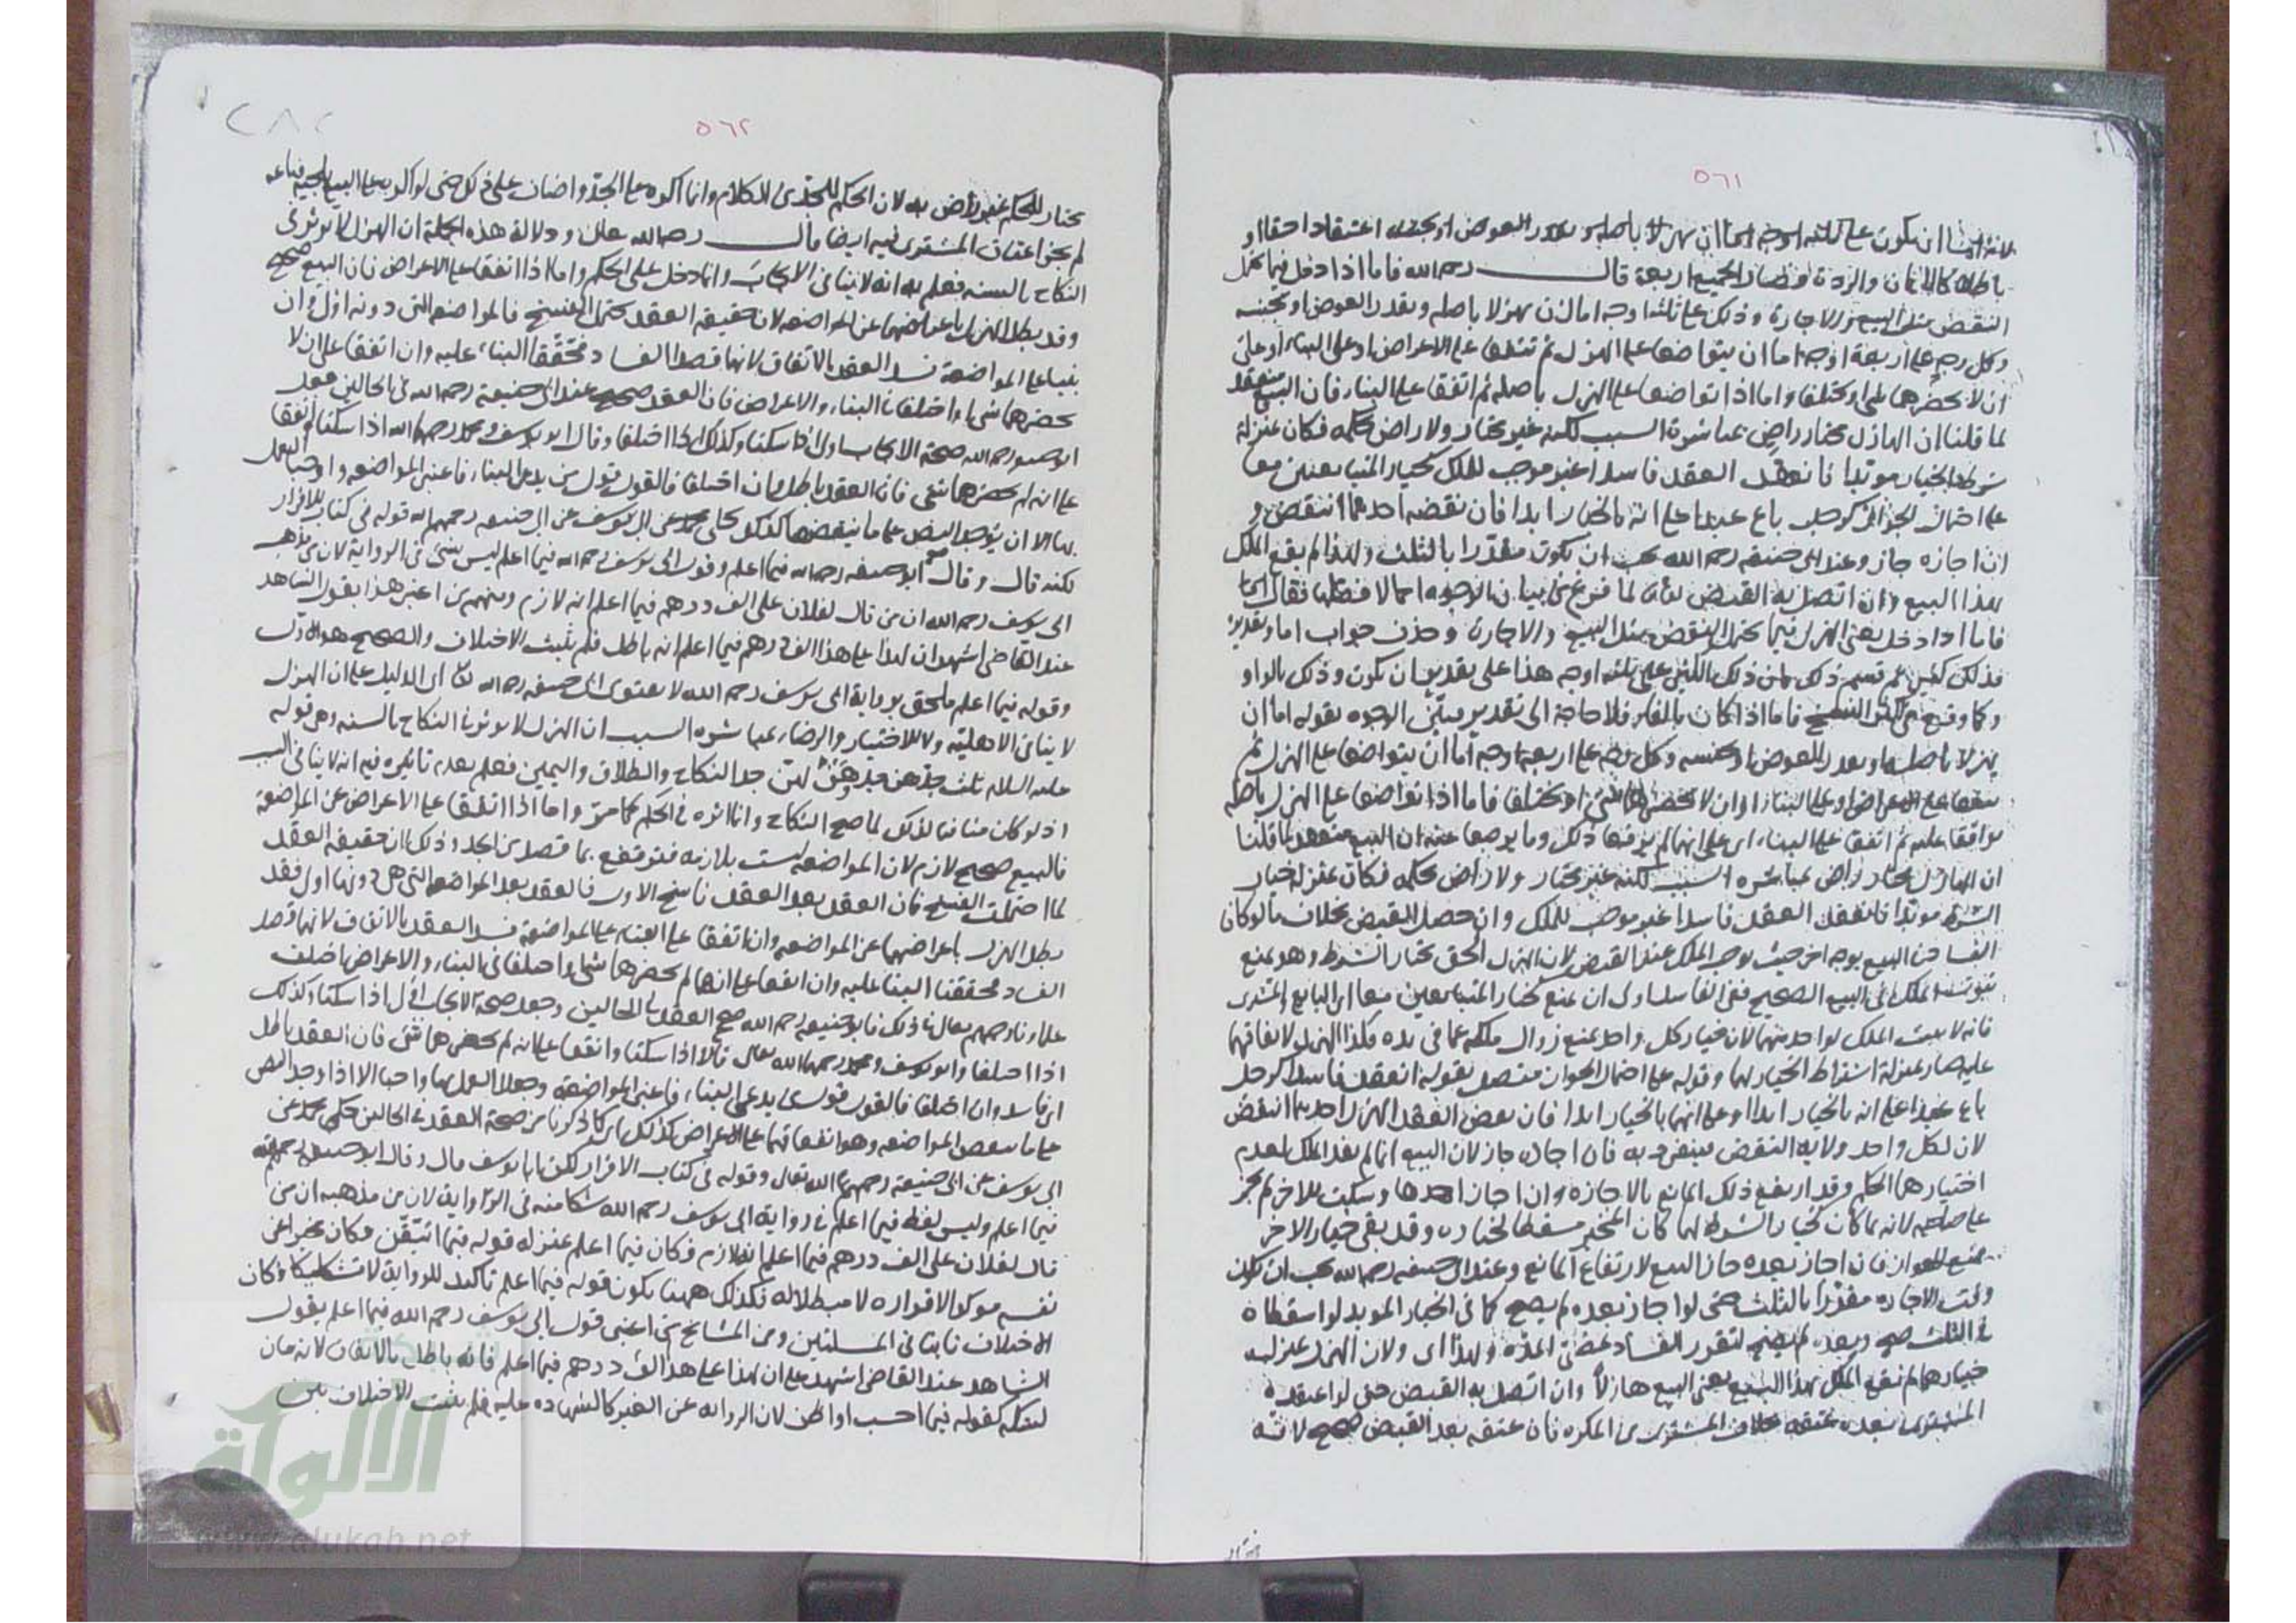 ٥٦١
باطلا كالايمان والردة فصار الجميع اربعة قال رحمه الله فاما اذا دخل فيما يحتمل
النقض مثل البيع والاجارة وذلك على ثلثة اوجه اما ان يهزلا باصله وبقدر العوض او بجنسه
وكل وجه على اربعة اوجه اما ان يتواضعا على الهزل ثم يتفقا على الاعراض او على البناء او على
ان لا يحضرهما شئ او يختلفا واما اذا تواضعا على الهزل باصله ثم اتفقا على البناء فان البيع منعقد
لما قلنا ان الهازل مختار راض بمباشرة السبب لكنه غير مختار ولا راض بحكمه فكان بمنزلة
شرط الخيار مؤبدا فانعقد العقد فاسدا غير موجب للملك كخيار المتبايعين معا
على احتمال الجواز كرجل باع عبدا على انه بالخيار ابدا فان نقضه احدهما انتقض و
ان اجازه جاز وعند ابى حنيفه رحمه الله يجب ان يكون مقدرا بالثلث ولهذا لم يقع الملك
بهذا البيع وان اتصل به القبض لما فرغ من بيان الاوجه اجمالا فصلها فقال
فاما اذا دخل يعنى الهزل فيما يحتمل النقض مثل البيع والاجارة وحذف جواب اما وتقديره
فذلك
فاما اذا كان بالفاء فلا حاجة الى تقدير يبين الوجوه بقوله اما ان
يهزلا باصله او بقدر العوض او بجنسه وكل وجه على اربعة اوجه اما ان يتواضعا على الهزل ثم
يتفقا على الاعراض او على البناء او ان لا يحضرهما شئ او يختلفا فاما اذا تواضعا على الهزل باصله
توافقا عليه ثم اتفقا على البناء اى على انهما لم يرفعا ذلك وما يرجعا عنه ان البيع منعقد لما قلنا
ان الهازل مختار راض بمباشرة السبب لكنه غير مختار ولا راض بحكمه فكان بمنزلة خيار
الشرط مؤبدا فانعقد العقد فاسدا غير موجب للملك وان حصل القبض بخلاف ما لو كان
الفساد فى البيع بوجه اخر حيث يوجب الملك عند القبض لان الهزل الحق بخيار الشرط وهو يمنع
ثبوت الملك فى البيع الصحيح ففى الفاسد اولى ان يمنع كخيار المتبايعين معا اى البائع والمشترى
فانه لا يثبت الملك لواحد منهما لان خيار كل واحد يمنع زوال ملكه عما فى يده فكذا الهزل لاتفاقهما
عليه صار بمنزلة اشتراط الخيار لهما وقوله على احتمال الجواز متصل بقوله انعقد فاسدا كرجل
باع عبدا على انه بالخيار ابدا او على انهما بالخيار ابدا فان نقض العقد الهزل احدهما انتقض
لان لكل واحد ولاية النقض فينفرد به فان اجازه جاز لان البيع انما لم يفد الملك لعدم
اختيارهما الحكم وقد ارتفع ذلك المانع بالاجازه وان اجاز احدهما وسكت الاخر لم يجز
على صاحبه لانه بما كان كخيار الشرط لهما كان المجيز مسقطا لخياره وقد بقى خيار الاخر
فيمنع الجواز فان اجاز بعده جاز البيع لارتفاع المانع وعند ابى حنيفه رحمه الله يجب ان يكون
وقت الاجازه مقدرا بالثلث حتى لو اجاز بعده لم يصح كما فى الخيار المؤبد لو اسقطاه
فى الثلث صح وبعده لم يصح لتقرر الفساد بمضى المدة ولهذا اى ولان الهزل بمنزلة
خيارهما لم يقع الملك بهذا البيع يعنى البيع هازلا وان اتصل به القبض حتى لو اعتقه
المشترى بعده عتقه بخلاف المشترى من المكره فان عتقه بعد القبض صحيح لانه
٥٦٢
مختار للحكم غير راض به لان الحكم للجد من الكلام وانما اكره على الجد
لم يجز اعتاق المشترى فيه ايضا قال رحمه الله ودلالة هذه الجملة ان الهزل لا يؤثر فى
النكاح بالسنة فعلم به انه لا ينافى الايجاب وانما دخل على الحكم واما اذا اتفقا على الاعراض فان البيع صحيح
وقد بطل الهزل باعراضهما عن المواضعه لان حقيقة العقد يحتمل الفسخ فالمواضعة التى دونه اولى وان
بنيا على المواضعة فسد العقد بالاتفاق لانهما قصدا الفساد فتحققا البناء عليه وان اتفقا على ان لا
يحضرهما شئ او اختلفا فى البناء والاعراض فان العقد صحيح عند ابى حنيفة رحمه الله فى الحالين فجعل
ابو حنيفه رحمه الله صحة الايجاب اولى اذا سكتا وكذلك اذا اختلفا وقال ابو يوسف ومحمد رحمهما الله اذا سكتا واتفقا
على انه لم يحضرهما شئ فان العقد باطل وان اختلفا فالقول قول من يدعى البناء فاعتبر المواضعه واوجبا العمل
بها الا ان يوجد النص على ما ينقضها كذلك حكى محمد عن ابى يوسف عن ابى حنيفه رحمهم الله قوله فى كتاب الاقرار
لكنه قال وقال ابو حنيفه رحمه الله فيما اعلم وقول ابى يوسف رحمه الله فيما اعلم ليس بشك فى الرواية لان من مذهب
ابى يوسف رحمه الله ان من قال لفلان على الف درهم فيما اعلم انه لازم ومنهم من اعتبر هذا بقول الشاهد
عند القاضى اشهد ان لهذا على هذا الف درهم فيما اعلم انه باطل فلم يثبت الاختلاف والصحيح هو الاول
وقوله فيما اعلم ملحق برواية ابى يوسف رحمه الله لا بفتوى ابى حنيفه رحمه الله اى الدليل على ان الهزل
لا ينافى الاهلية ولا الاختيار والرضاء بمباشرة السبب ان الهزل لا يؤثر فى النكاح بالسنه وهى قوله
عليه السلام ثلث جدهن جد وهزلهن جد النكاح والطلاق واليمين فعلم بعدم تاثيره فيه انه لا ينافى السبب
اذ لو كان منافيا لذلك لما صح النكاح وانما اثره فى الحكم كما مر واما اذا اتفقا على الاعراض عن المواضعة
فالبيع صحيح لازم لان المواضعة ليست بلازمة فترتفع بما قصدا من الجد وذلك ان حقيقة العقد
لما احتملت الفسخ فان العقد بعد العقد ناسخ الاول فالعقد بعد المواضعة التى هى دونها اولى فقد
بطل الهزل باعراضهما عن المواضعه وان اتفقا على البناء على المواضعة فسد العقد بالاتفاق لانهما قصدا
الفساد فحققنا البناء عليه وان اتفقا على انهما لم يحضرهما شئ او اختلفا فى البناء والاعراض اختلف
علماؤنا رحمهم الله تعالى فى ذلك فابو حنيفة رحمه الله صحح العقد فى الحالين وجعل صحة الايجاب اولى اذا سكتا وكذلك
اذا اختلفا وابو يوسف ومحمد رحمهما الله تعالى قالا اذا سكتا واتفقا على انه لم يحضرهما شئ فان العقد باطل
اى فاسد وان اختلفا فالقول قول من يدعى البناء فاعتبر المواضعة وجعلا العمل بها واجبا الا اذا وجد النص
على ما ينقض المواضعه وهو اتفاقهما على الاعراض كذلك اى كما ذكرنا من صحة العقد فى الحالين حكى محمد عن
ابى يوسف عن ابى حنيفة رحمهم الله تعالى وقوله فى كتاب الاقرار لكن ابا يوسف قال وقال ابو حنيفه رحمهم الله
فيما اعلم وليس لفظه فيما اعلم فى رواية ابى يوسف رحمه الله شكا منه فى الرواية لان من مذهبه ان من
قال لفلان على الف درهم فيما اعلم انه لازم فكان فيما اعلم بمنزلة قوله فيما اتيقن فكان مخبرا عن
نفسه مؤكدا لاقراره لا مبطلا له فكذلك ههنا يكون قوله فيما اعلم تاكيد للرواية لا تشكيكا وكان
الاختلاف ثابتا فى المسئلتين ومن المشايخ من اعتبر قول ابى يوسف رحمه الله فيما اعلم بقول
الشاهد عند القاضى اشهد على ان لهذا على هذا الف درهم فيما اعلم فانه باطل بالاتفاق لانه
كقوله فيما احسب او اظن لان الروايه عن الغير كالشهاده عليه فلم يثبت الاختلاف بين
الألوكة
www.alukah.net